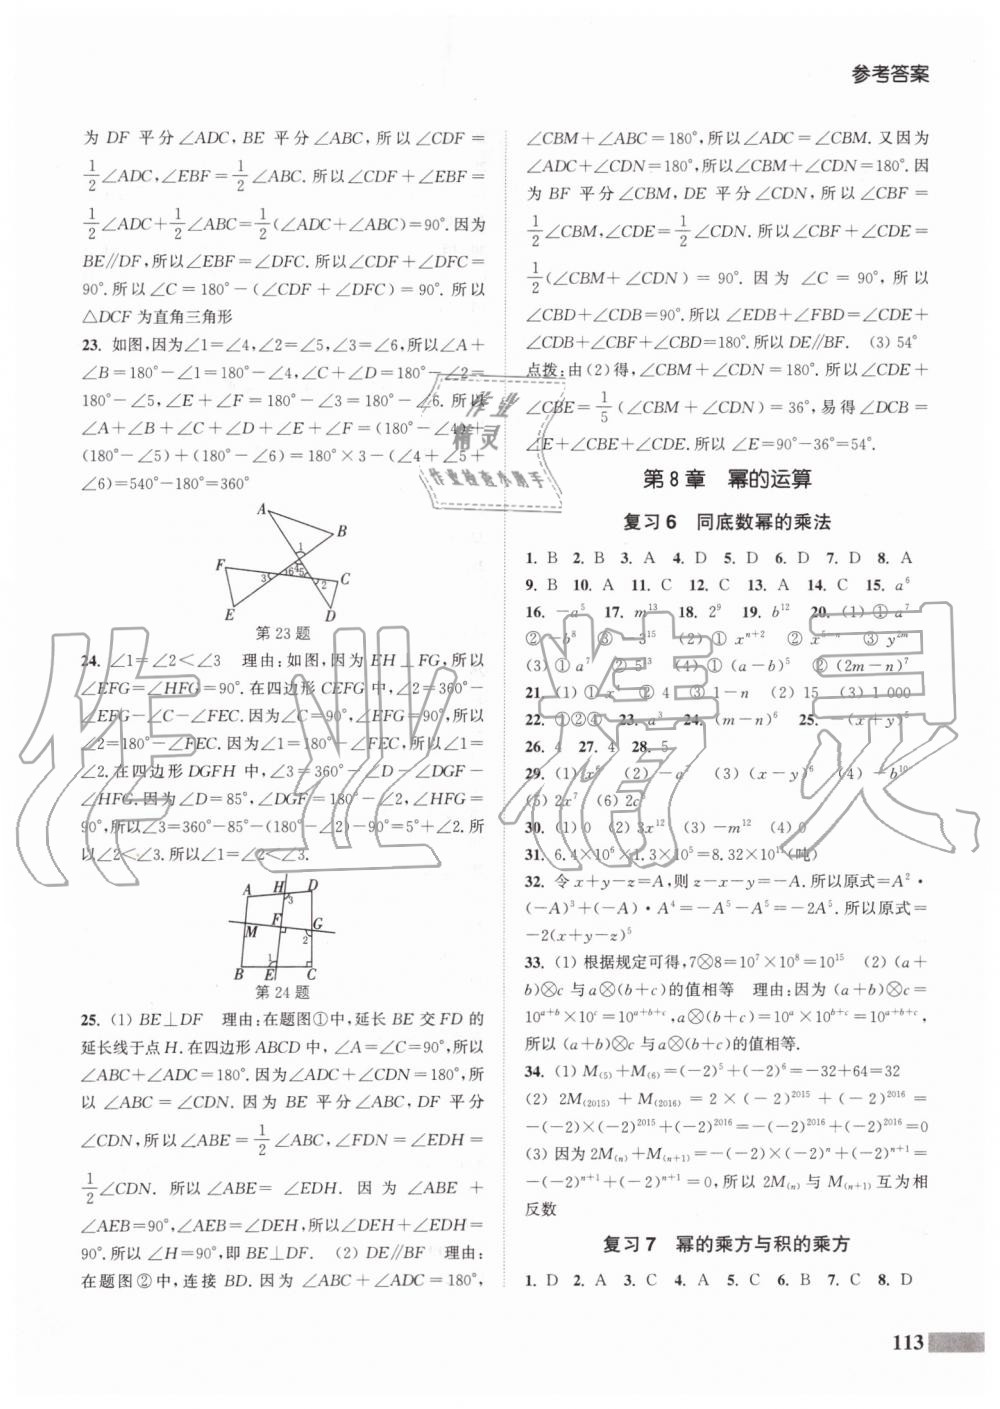 参考答案
为 DF 平分∠ADC,BE 平分∠ABC,所以∠CDF=
1/2∠ADC,∠EBF=1/2∠ABC.所以∠CDF+∠EBF=
1/2∠ADC+1/2∠ABC=1/2(∠ADC+∠ABC)=90°.因为
BE∥DF,所以∠EBF=∠DFC.所以∠CDF+∠DFC=
90°.所以∠C=180°-(∠CDF+∠DFC)=90°.所以
△DCF 为直角三角形
23. 如图,因为∠1=∠4,∠2=∠5,∠3=∠6,所以∠A+
∠B=180°-∠1=180°-∠4,∠C+∠D=180°-∠2=
180°-∠5,∠E+∠F=180°-∠3=180°-∠6.所以
∠A+∠B+∠C+∠D+∠E+∠F=(180°-∠4)+
(180°-∠5)+(180°-∠6)=180°×3-(∠4+∠5+
∠6)=540°-180°=360°
A
B
F
1
3
6
4
5
2
C
E
D
第 23 题
24. ∠1=∠2<∠3 理由:如图,因为 EH⊥FG,所以
∠EFG=∠HFG=90°.在四边形 CEFG 中,∠2=360°-
∠EFG-∠C-∠FEC.因为∠C=90°,∠EFG=90°,所以
∠2=180°-∠FEC.因为∠1=180°-∠FEC,所以∠1=
∠2.在四边形 DGFH 中,∠3=360°-∠D-∠DGF-
∠HFG.因为∠D=85°,∠DGF=180°-∠2,∠HFG=
90°,所以∠3=360°-85°-(180°-∠2)-90°=5°+∠2.所
以∠2<∠3.所以∠1=∠2<∠3.
A
H
D
3
F
G
M
2
1
B
E
C
第 24 题
25. (1) BE⊥DF 理由:在题图①中,延长 BE 交 FD 的
延长线于点 H.在四边形 ABCD 中,∠A=∠C=90°,所以
∠ABC+∠ADC=180°.因为∠ADC+∠CDN=180°,所
以∠ABC=∠CDN.因为 BE 平分∠ABC,DF 平分
∠CDN,所以∠ABE=1/2∠ABC,∠FDN=∠EDH=
1/2∠CDN.所以∠ABE=∠EDH.因为∠ABE+
∠AEB=90°,∠AEB=∠DEH,所以∠DEH+∠EDH=
90°.所以∠H=90°,即 BE⊥DF. (2) DE∥BF 理由:
在题图②中,连接 BD.因为∠ABC+∠ADC=180°,
∠CBM+∠ABC=180°,所以∠ADC=∠CBM.又因为
∠ADC+∠CDN=180°,所以∠CBM+∠CDN=180°.因
为 BF 平分∠CBM,DE 平分∠CDN,所以∠CBF=
1/2∠CBM,∠CDE=1/2∠CDN.所以∠CBF+∠CDE=
1/2(∠CBM+∠CDN)=90°.因为∠C=90°,所以
∠CBD+∠CDB=90°.所以∠EDB+∠FBD=∠CDE+
∠CDB+∠CBF+∠CBD=180°.所以 DE∥BF. (3) 54°
点拨:由(2)得,∠CBM+∠CDN=180°.所以∠CDE+
∠CBE=1/5(∠CBM+∠CDN)=36°,易得∠DCB=
∠E+∠CBE+∠CDE.所以∠E=90°-36°=54°.
第 8 章 幂的运算
复习 6 同底数幂的乘法
1. B 2. B 3. A 4. D 5. D 6. D 7. D 8. A
9. B 10. A 11. C 12. C 13. A 14. C 15. a⁶
16. -a⁵ 17. m¹³ 18. 2⁹ 19. b¹² 20. (1) ① a⁷
② -b⁸ ③ 3¹⁵ (2) ① xⁿ⁺² ② x⁵⁻ⁿ ③ y²ᵐ
(3) ① a⁷ ② 5³ (4) ① (a-b)⁵ ② (2m-n)⁷
21. (1) ① x⁴ ② 4 ③ 1-n (2) 15 (3) 1 000
22. ①②④ 23. a³ 24. (m-n)⁶ 25. -(x+y)⁵
26. 4 27. 4 28. 5
29. (1) x⁶ (2) -a⁷ (3) (x-y)⁶ (4) -b¹⁰
(5) 2x⁷ (6) 2c⁵
30. (1) 0 (2) 3x¹² (3) -m¹² (4) 0
31. 6.4×10⁶×1.3×10⁵=8.32×10¹¹(吨)
32. 令 x+y-z=A,则 z-x-y=-A.所以原式=A²·
(-A)³+(-A)·A⁴=-A⁵-A⁵=-2A⁵.所以原式=
-2(x+y-z)⁵
33. (1) 根据规定可得,7⊗8=10⁷×10⁸=10¹⁵ (2) (a+
b)⊗c 与 a⊗(b+c)的值相等 理由:因为 (a+b)⊗c=
10ᵃ⁺ᵇ×10ᶜ=10ᵃ⁺ᵇ⁺ᶜ,a⊗(b+c)=10ᵃ×10ᵇ⁺ᶜ=10ᵃ⁺ᵇ⁺ᶜ,
所以 (a+b)⊗c 与 a⊗(b+c)的值相等.
34. (1) M₍₅₎+M₍₆₎=(-2)⁵+(-2)⁶=-32+64=32
(2) 2M₍₂₀₁₅₎+M₍₂₀₁₆₎=2×(-2)²⁰¹⁵+(-2)²⁰¹⁶=
-(-2)×(-2)²⁰¹⁵+(-2)²⁰¹⁶=-(-2)²⁰¹⁶+(-2)²⁰¹⁶=0
(3) 因为 2M₍ₙ₎+M₍ₙ₊₁₎=-(-2)×(-2)ⁿ+(-2)ⁿ⁺¹=
-(-2)ⁿ⁺¹+(-2)ⁿ⁺¹=0,所以 2M₍ₙ₎与 M₍ₙ₊₁₎互为相
反数
复习 7 幂的乘方与积的乘方
1. D 2. A 3. C 4. A 5. C 6. B 7. C 8. D
113
作业
精灵
作业检查小助手
作业精灵